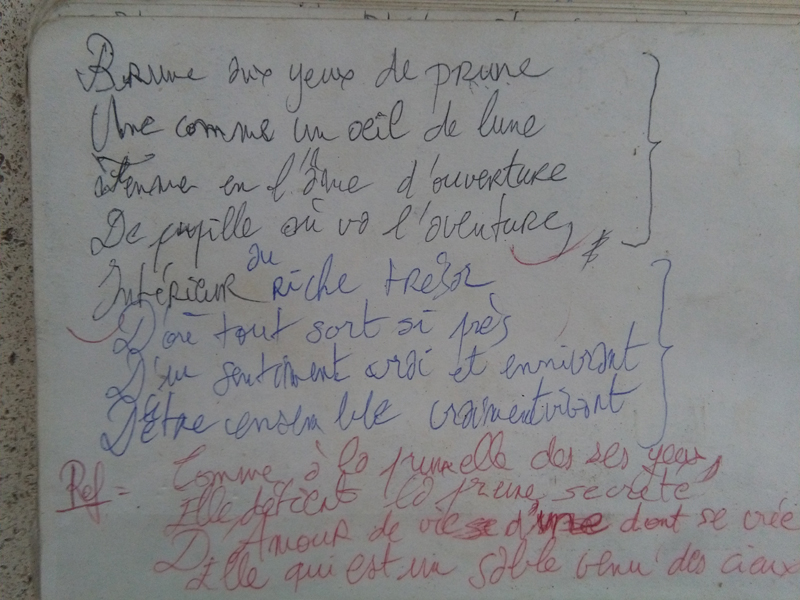 Brune aux yeux de prune
Une comme un oeil de lune
en l'âme d'ouverture
De pupille où va l'aventure,
Intérieur au riche trésor
D'où tout sort si près
D'un sentiment vrai et ennivrant
D'être ensemble vraiment vivant
Ref = Comme à la prunelle des ses yeux,
Elle détient la prune secrète
D'Amour de vie d'une dont se crée
Elle qui est un sable venu des cieux